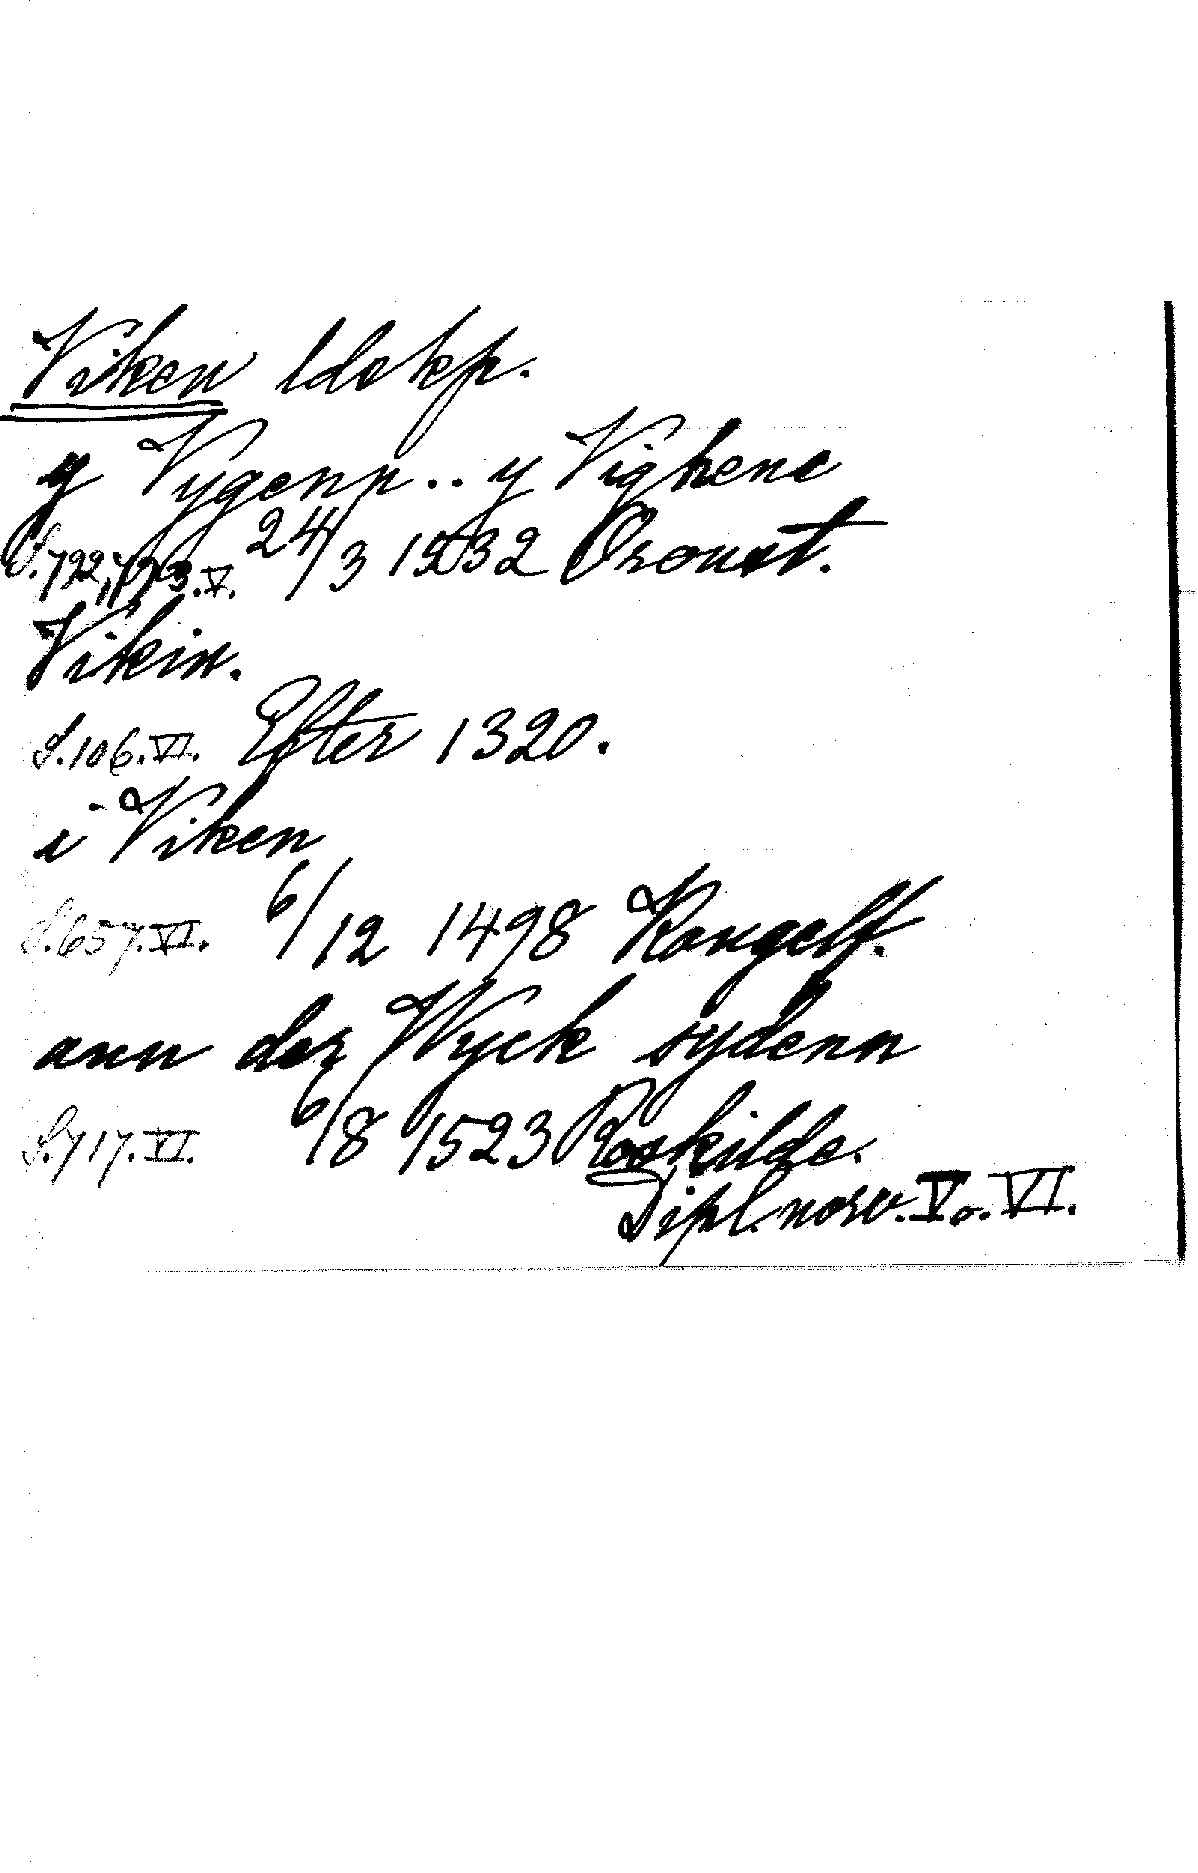 Viken ldskp.
y Vygenn.. y Vighene
S.792, 793.V. 24/3 1532 Oroust.
Vikin.
S.106.VI. Efter 1320.
i Viken
S.657.VI. 6/12 1498 Kongelf.
ann der Wyck sydenn
S.717.VI. 6/8 1523 Roskilde.
Dipl. norv. V o. VI.